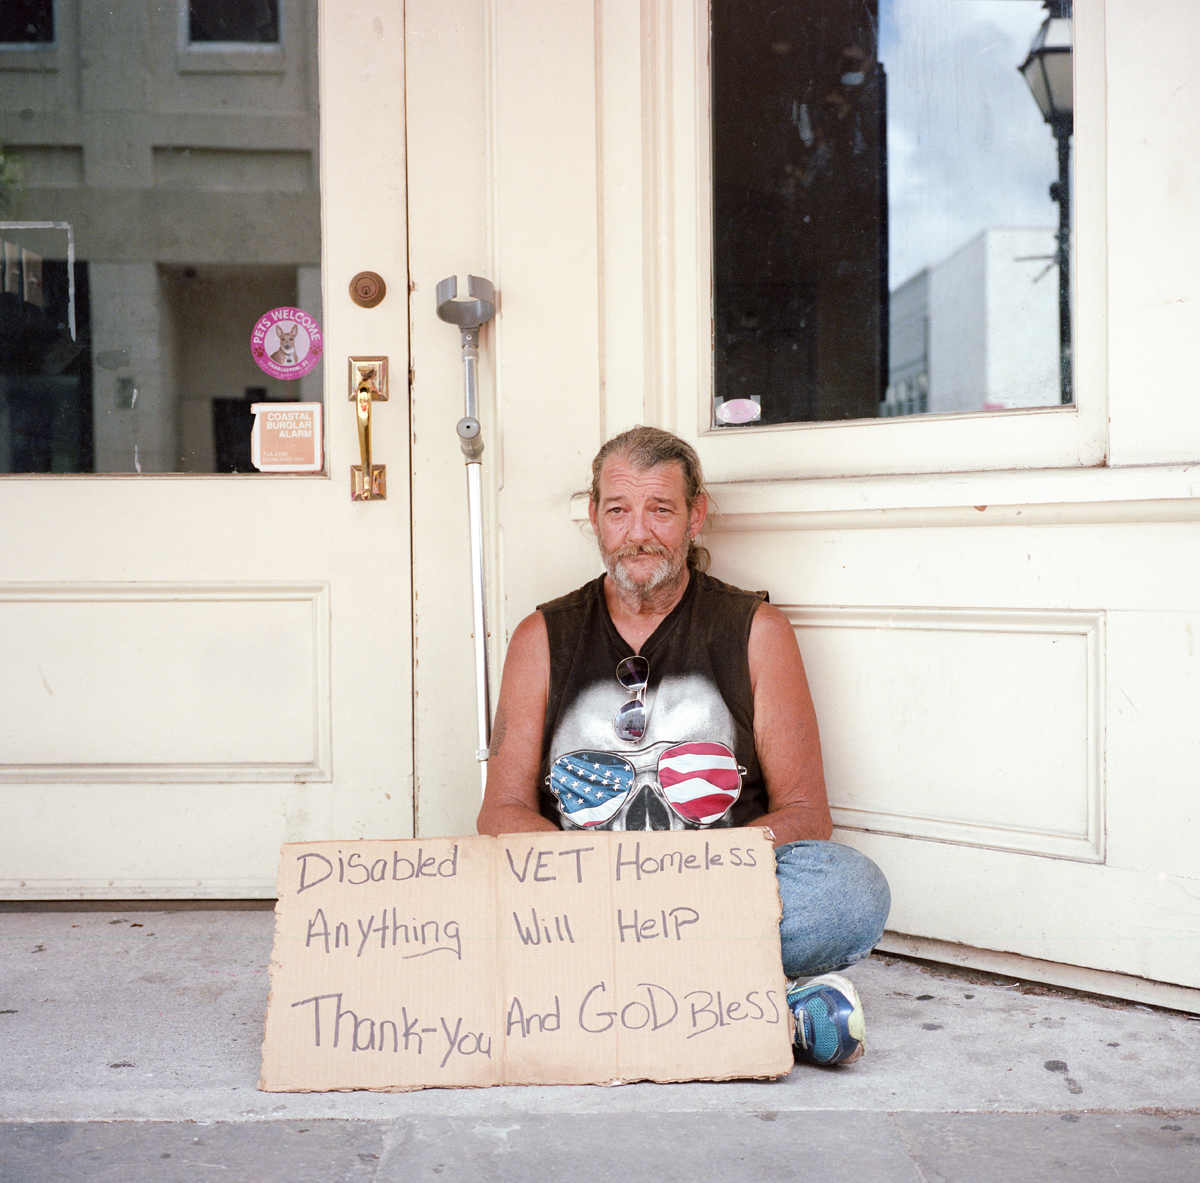 PETS WELCOME
CHARLESTON, SC
COASTAL
BURGLAR
ALARM
Disabled VET Homeless
Anything Will Help
Thank-you And GOD Bless